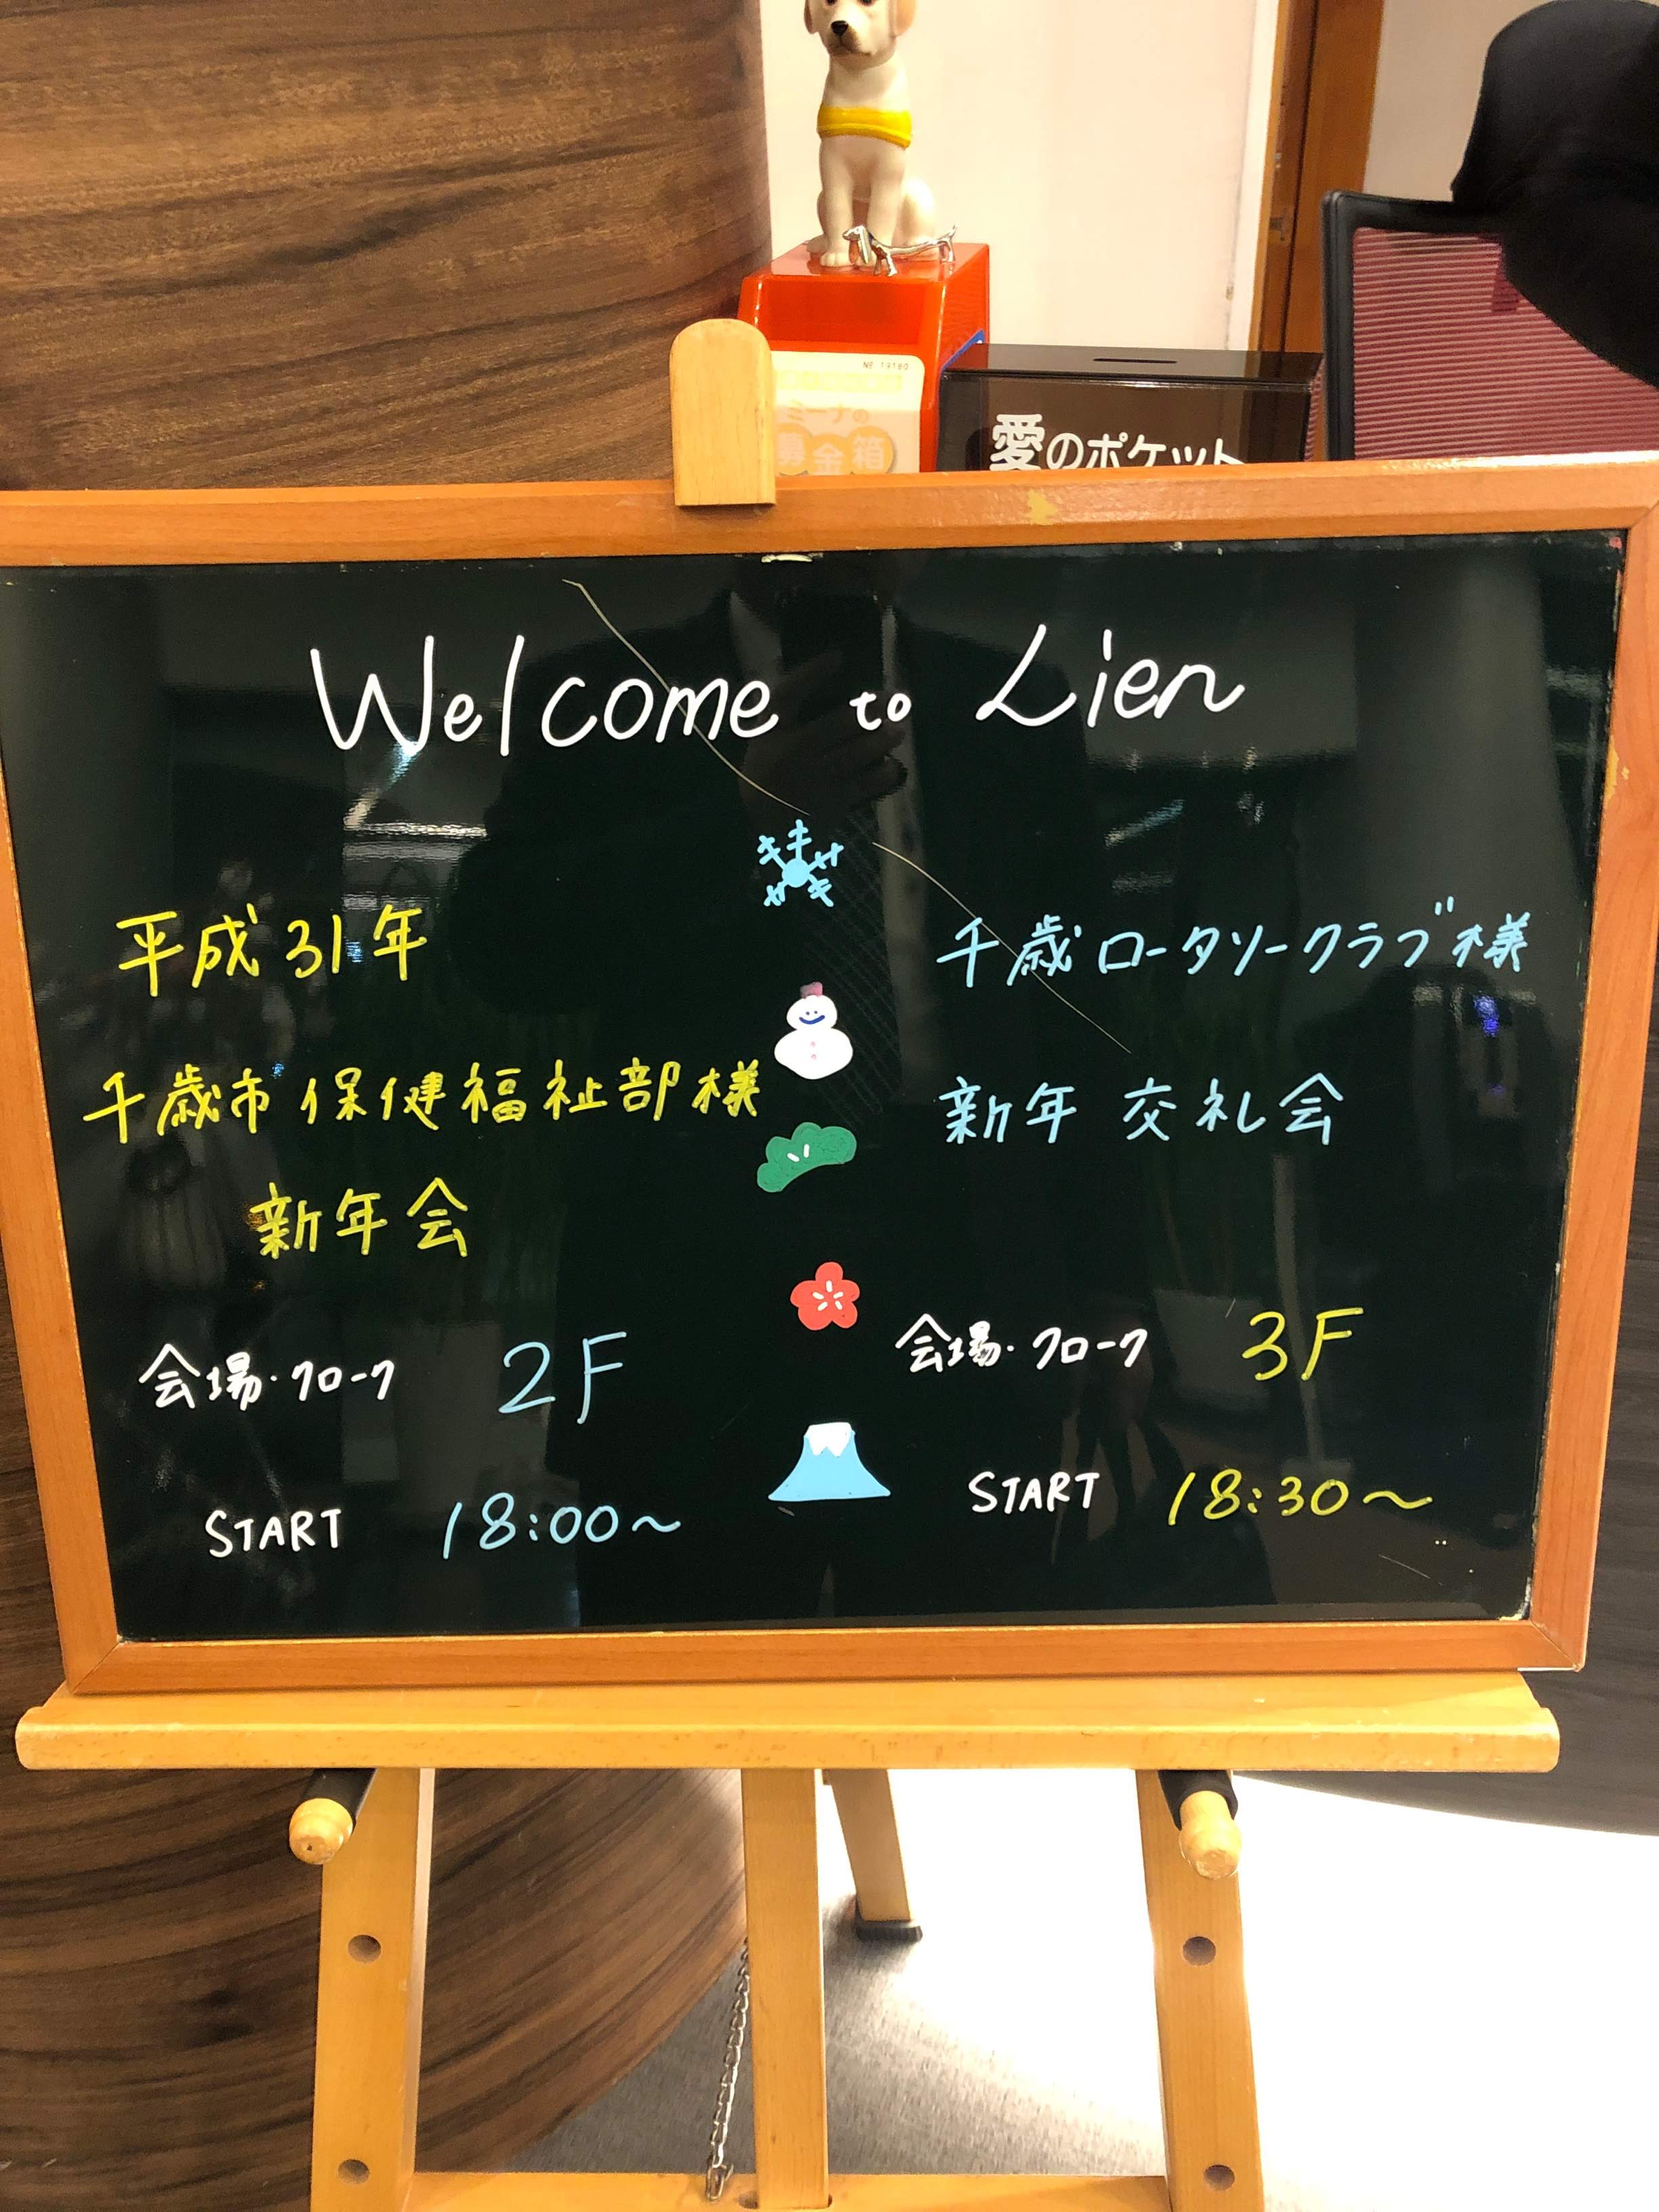 № 19180
ミーナの
募金箱
愛のポケット
Welcome to Lien
平成31年
千歳市 保健福祉部様
新年会
会場・クロ-ク 2F
START 18:00～
千歳ロータリークラブ様
新年 交礼会
会場・クロ-ク 3F
START 18:30～